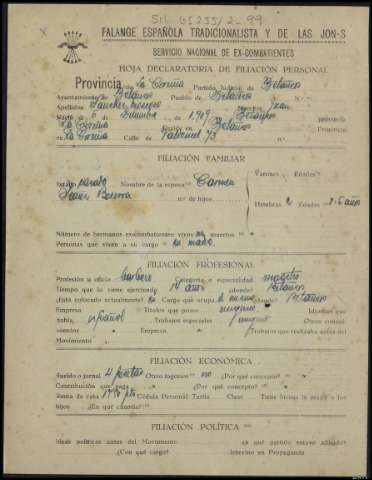 SIL 65255/2-99
FALANGE ESPAÑOLA TRADICIONALISTA Y DE LAS JON-S
SERVICIO NACIONAL DE EX-COMBATIENTES
HOJA DECLARATORIA DE FILIACIÓN PERSONAL
Provincia La Coruña Partido Judicial de Betanzos
Ayuntamiento de Betanzos Pueblo de Betanzos
Apellidos Sanchez Nombre Juan
Nació 6 de 1.909 en Betanzos Provincia
La Coruña Reside en Betanzos Provincia
La Coruña Calle de nº
FILIACIÓN FAMILIAR
Estado casado Nombre de la esposa Carmen
nº de hijos Varones Edades
Hembras 2 Edades 3-6 años
Número de hermanos excombatientes vivos muertos
Personas que viven a su cargo su madre
FILIACIÓN PROFESIONAL
Profesión u oficio barbero Categoría o especialidad maestro
Tiempo que la viene ejerciendo años ¿dónde? Betanzos
¿Está colocado actualmente? Cargo que ocupa el mismo ¿dónde? Betanzos
Empresa Títulos que posee ninguno Idiomas que
habla español Trabajos especiales ninguno Otros conoci-
mientos Empresa ¿Trabajos que realizaba antes del
Movimiento
FILIACIÓN ECONÓMICA
Sueldo o jornal 4 pesetas Otros ingresos no ¿Por qué concepto?
Contribución que paga ¿Por qué concepto?
Renta de casa pts Cédula Personal Tarifa Clase Tiene fincas la mujer o los
hijos ¿En qué cuantía?
FILIACIÓN POLÍTICA
Ideas políticas antes del Movimiento ¿a qué partido estuvo afiliado?
¿Con qué cargo? Intervino en Propaganda